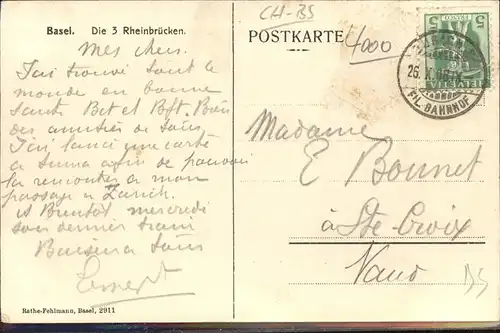 Basel. Die 3 Rheinbrücken.
Mes chers.
J'ai trouvé tout le
monde en bonne
santé Bet et Bft. Bien
des amitiés de tous
J'ai lancé une carte
à Emma afin de pouvoir
la rencontrer à mon
passage à Zurich.
A Bientôt mercredi
soir dernier train
Baisers à tous
Ernest
Rathe-Fehlmann, Basel, 2911
CH-BS
POSTKARTE
4000
5 5
HELVETIA
26.X.
FIL. BAHNHOF
Madame
E Bonnet
à Ste Croix
Vaud
BS